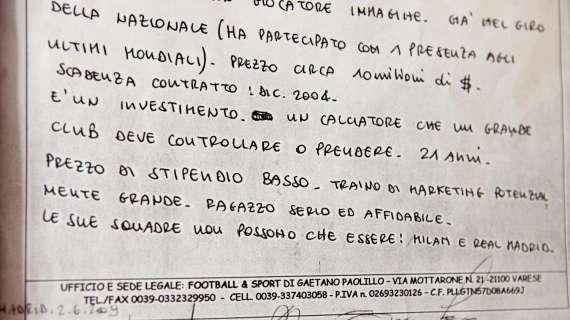 GIOCATORE IMMAGINE. GIÀ NEL GIRO
DELLA NAZIONALE (HA PARTECIPATO CON 1 PRESENZA AGLI
ULTIMI MONDIALI). PREZZO CIRCA 10 milioni di $.
SCADENZA CONTRATTO: DIC. 2004.
E' UN INVESTIMENTO. UN CALCIATORE CHE UN GRANDE
CLUB DEVE CONTROLLARE O PRENDERE. 21 ANNI.
PREZZO DI STIPENDIO BASSO. TRAINO DI MARKETING POTENZIAL
MENTE GRANDE. RAGAZZO SERIO ED AFFIDABILE.
LE SUE SQUADRE NON POSSONO CHE ESSERE: MILAN E REAL MADRID.
UFFICIO E SEDE LEGALE: FOOTBALL & SPORT DI GAETANO PAOLILLO - VIA MOTTARONE N. 21 -21100 VARESE
TEL/FAX 0039-0332329950 - CELL. 0039-337403058 - P.IVA n. 02693230126 - C.F. PLLGTN57D08A669J
MADRID. 2.6.2009